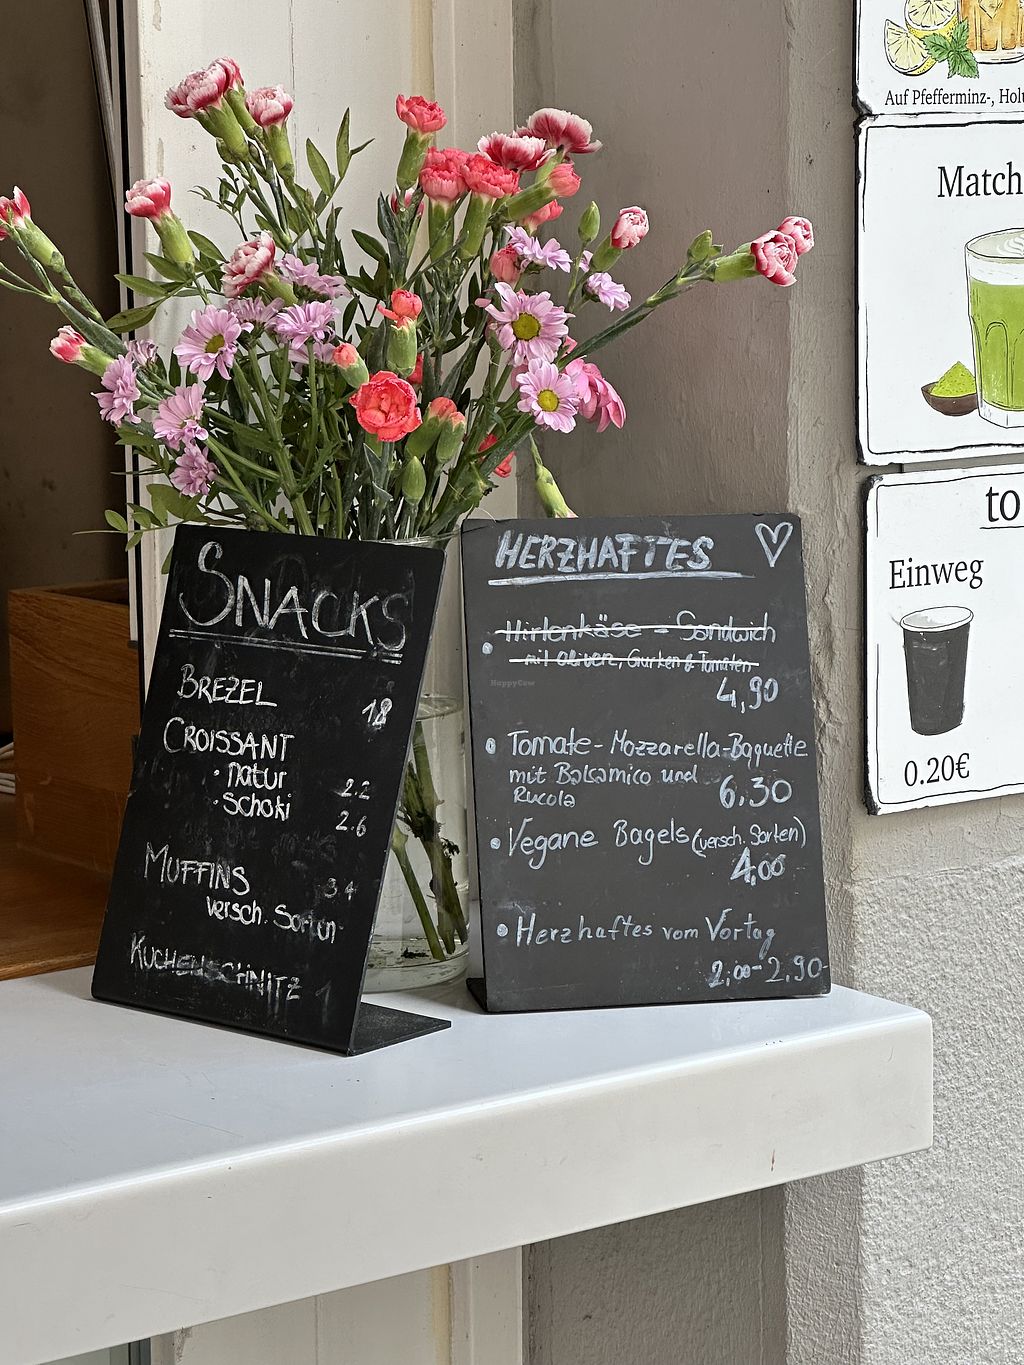 SNACKS
BREZEL
18
CROISSANT
· natur 2.2
· schoki 2.6
MUFFINS 3 4
versch. Sorten
KUCHENSCHNITZ 1
HERZHAFTES ♡
• Hirtenkäse - Sandwich
mit Oliven, Gurken & Tomaten
4,90
• Tomate-Mozzarella-Baguette
mit Balsamico und
Rucola 6,30
• Vegane Bagels (versch. Sorten)
4,00
• Herzhaftes vom Vortag
2,00-2,90-
HappyCow
Auf Pfefferminz-, Holu
Match
to
Einweg
0.20€